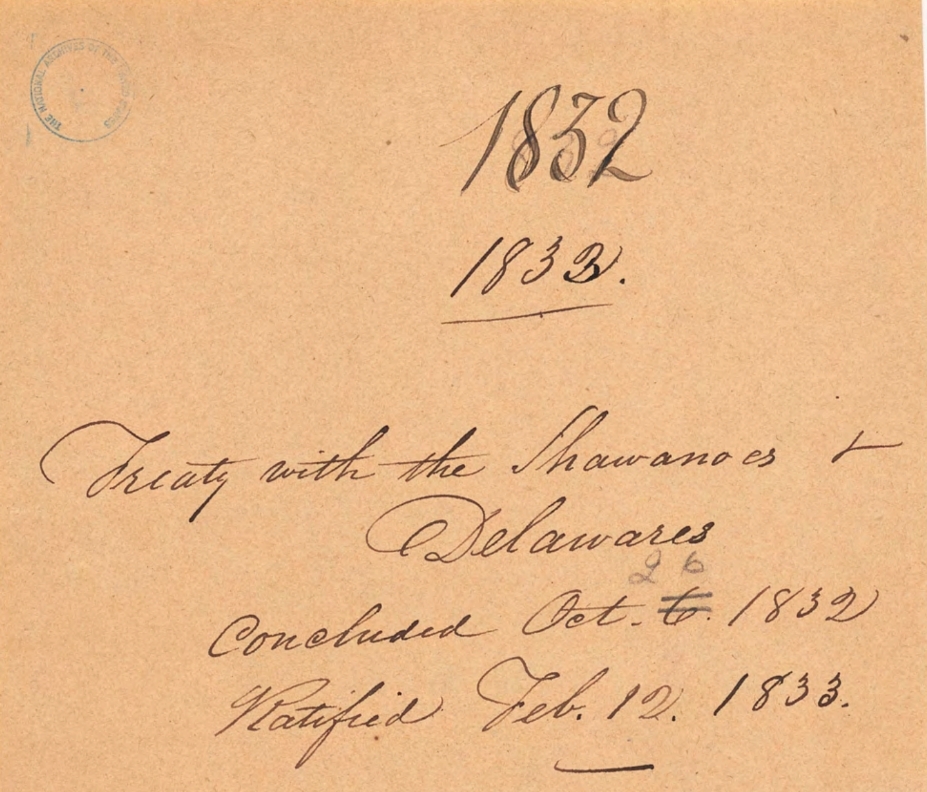 THE NATIONAL ARCHIVES OF THE UNITED STATES
1832
1832.
Treaty with the Shawanoes &
Delawares
26
Concluded Oct. 6. 1832
Ratified Feb. 12. 1833.